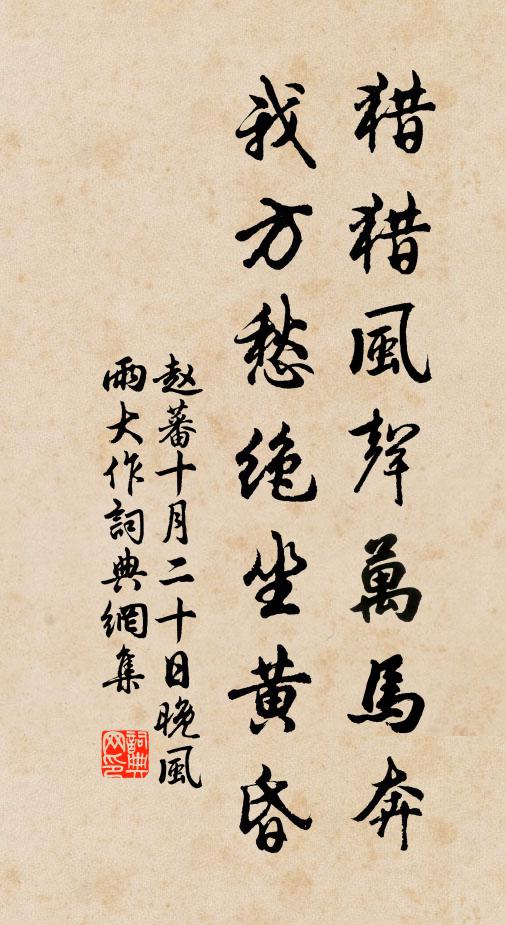 猎猎風聲萬馬奔
我方愁绝坐黄昏
赵蕃十月二十日晚風
雨大作詞典網集
詞典網印